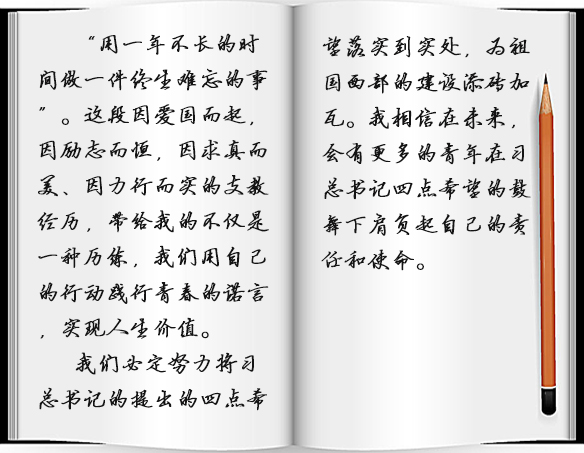 “用一年不长的时
间做一件终生难忘的事
”。这段因爱国而起，
因励志而恒，因求真而
美、因力行而实的支教
经历，带给我的不仅是
一种历练，我们用自己
的行动践行青春的诺言
，实现人生价值。
我们必定努力将习
总书记的提出的四点希
望落实到实处，为祖
国西部的建设添砖加
瓦。我相信在未来，
会有更多的青年在习
总书记四点希望的鼓
舞下肩负起自己的责
任和使命。